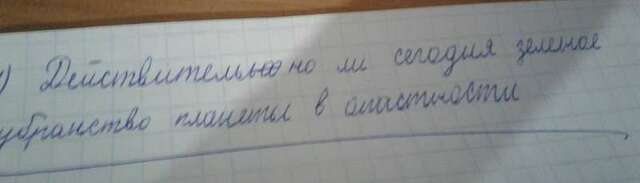 1) Действительно ли сегодня зеленое
убранство планеты в опастности